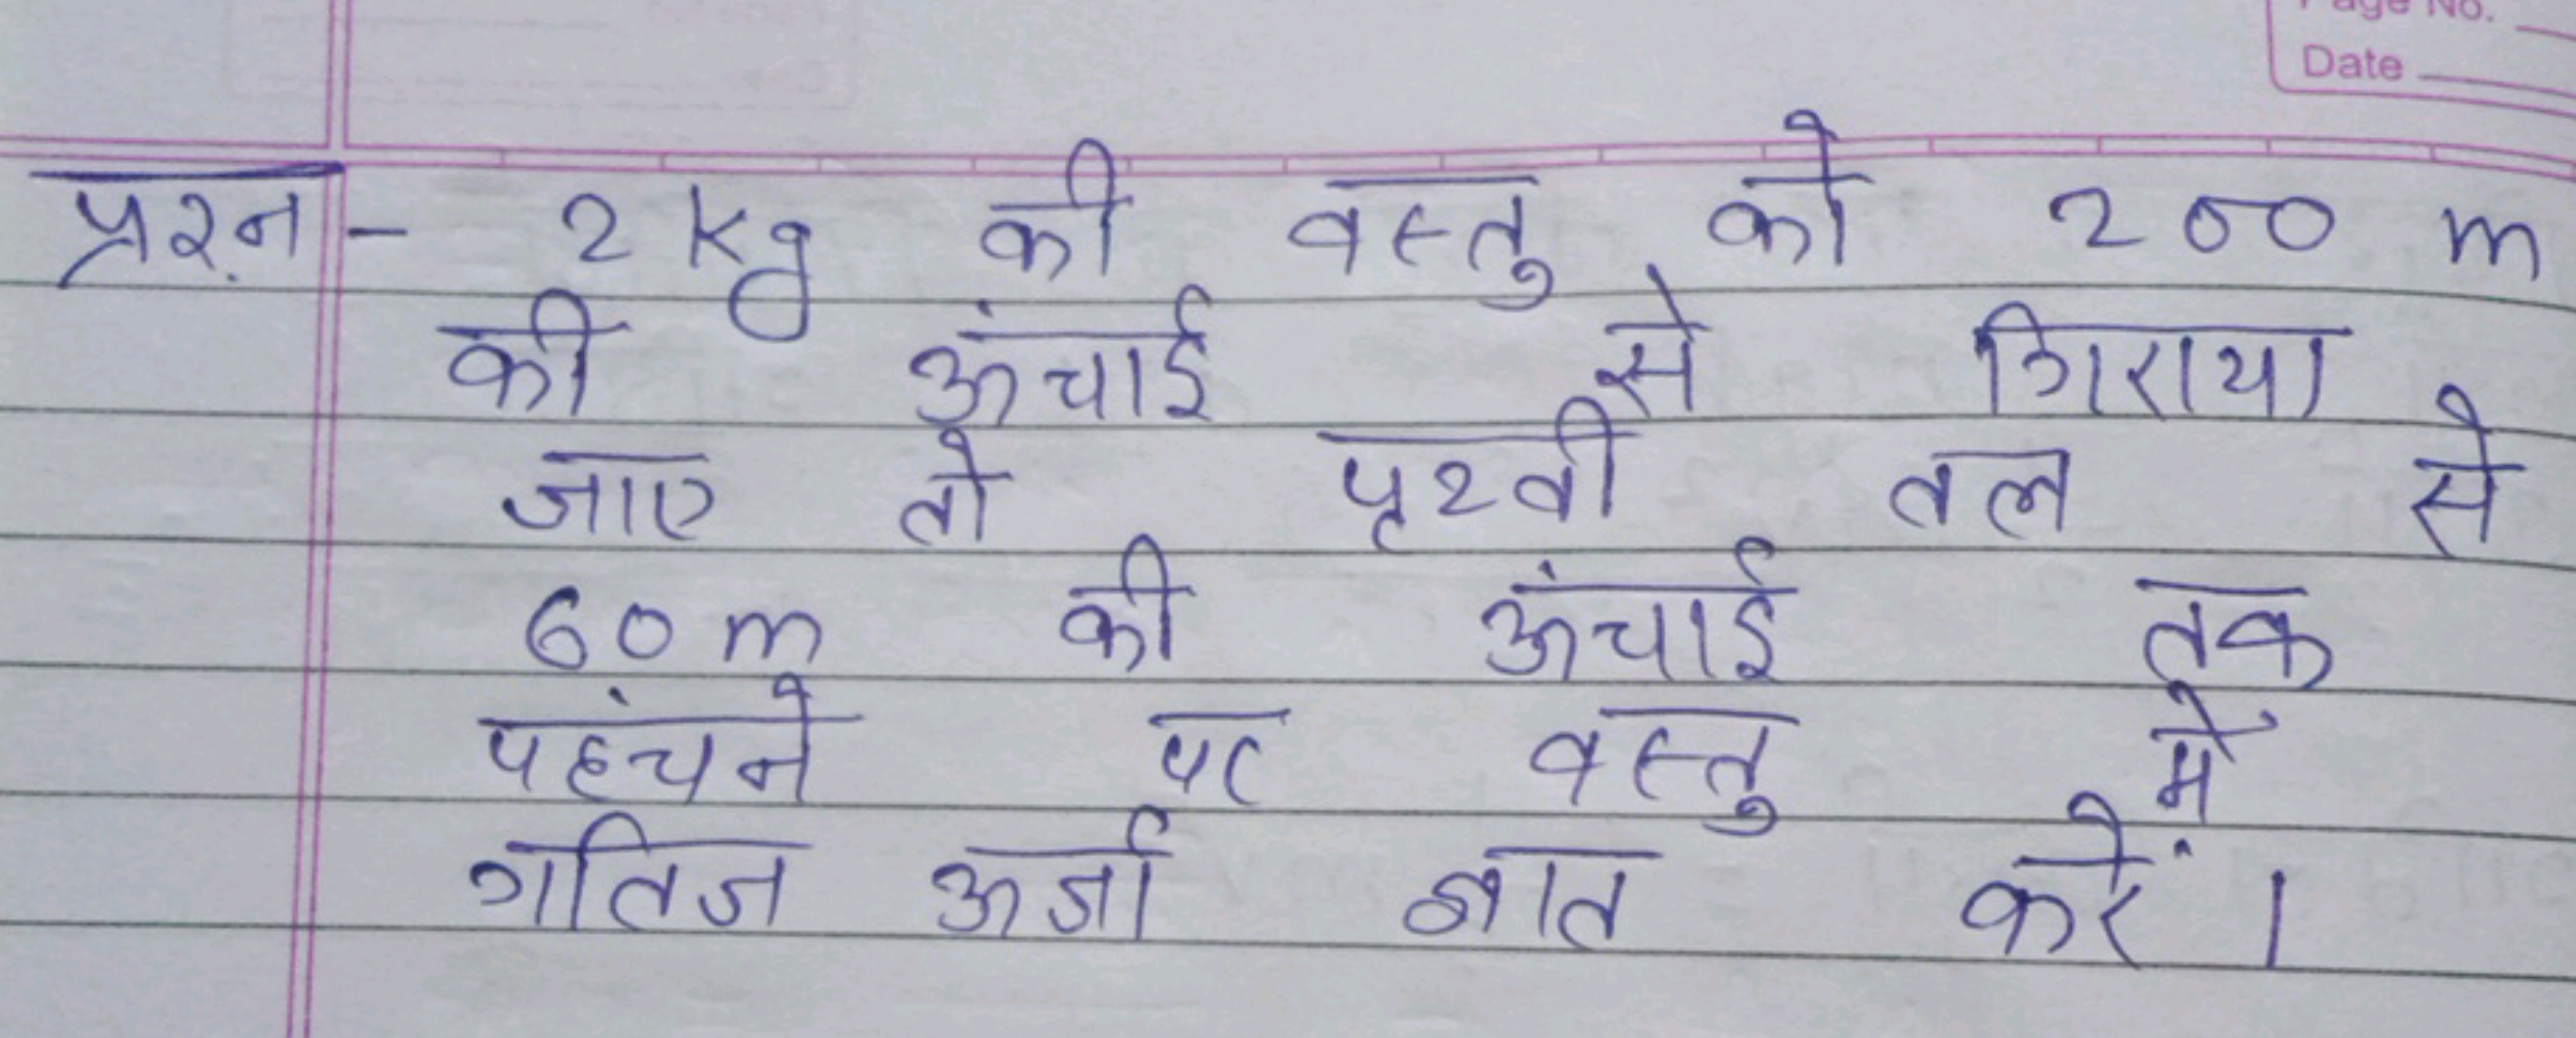 Page No.
Date
प्रश्न - 2 kg की वस्तु को 200 m
की ऊंचाई से गिराया
जाए तो पृथ्वी तल से
60 m की ऊंचाई तक
पहंचने पर वस्तु में
गतिज ऊर्जा ज्ञात करें ।